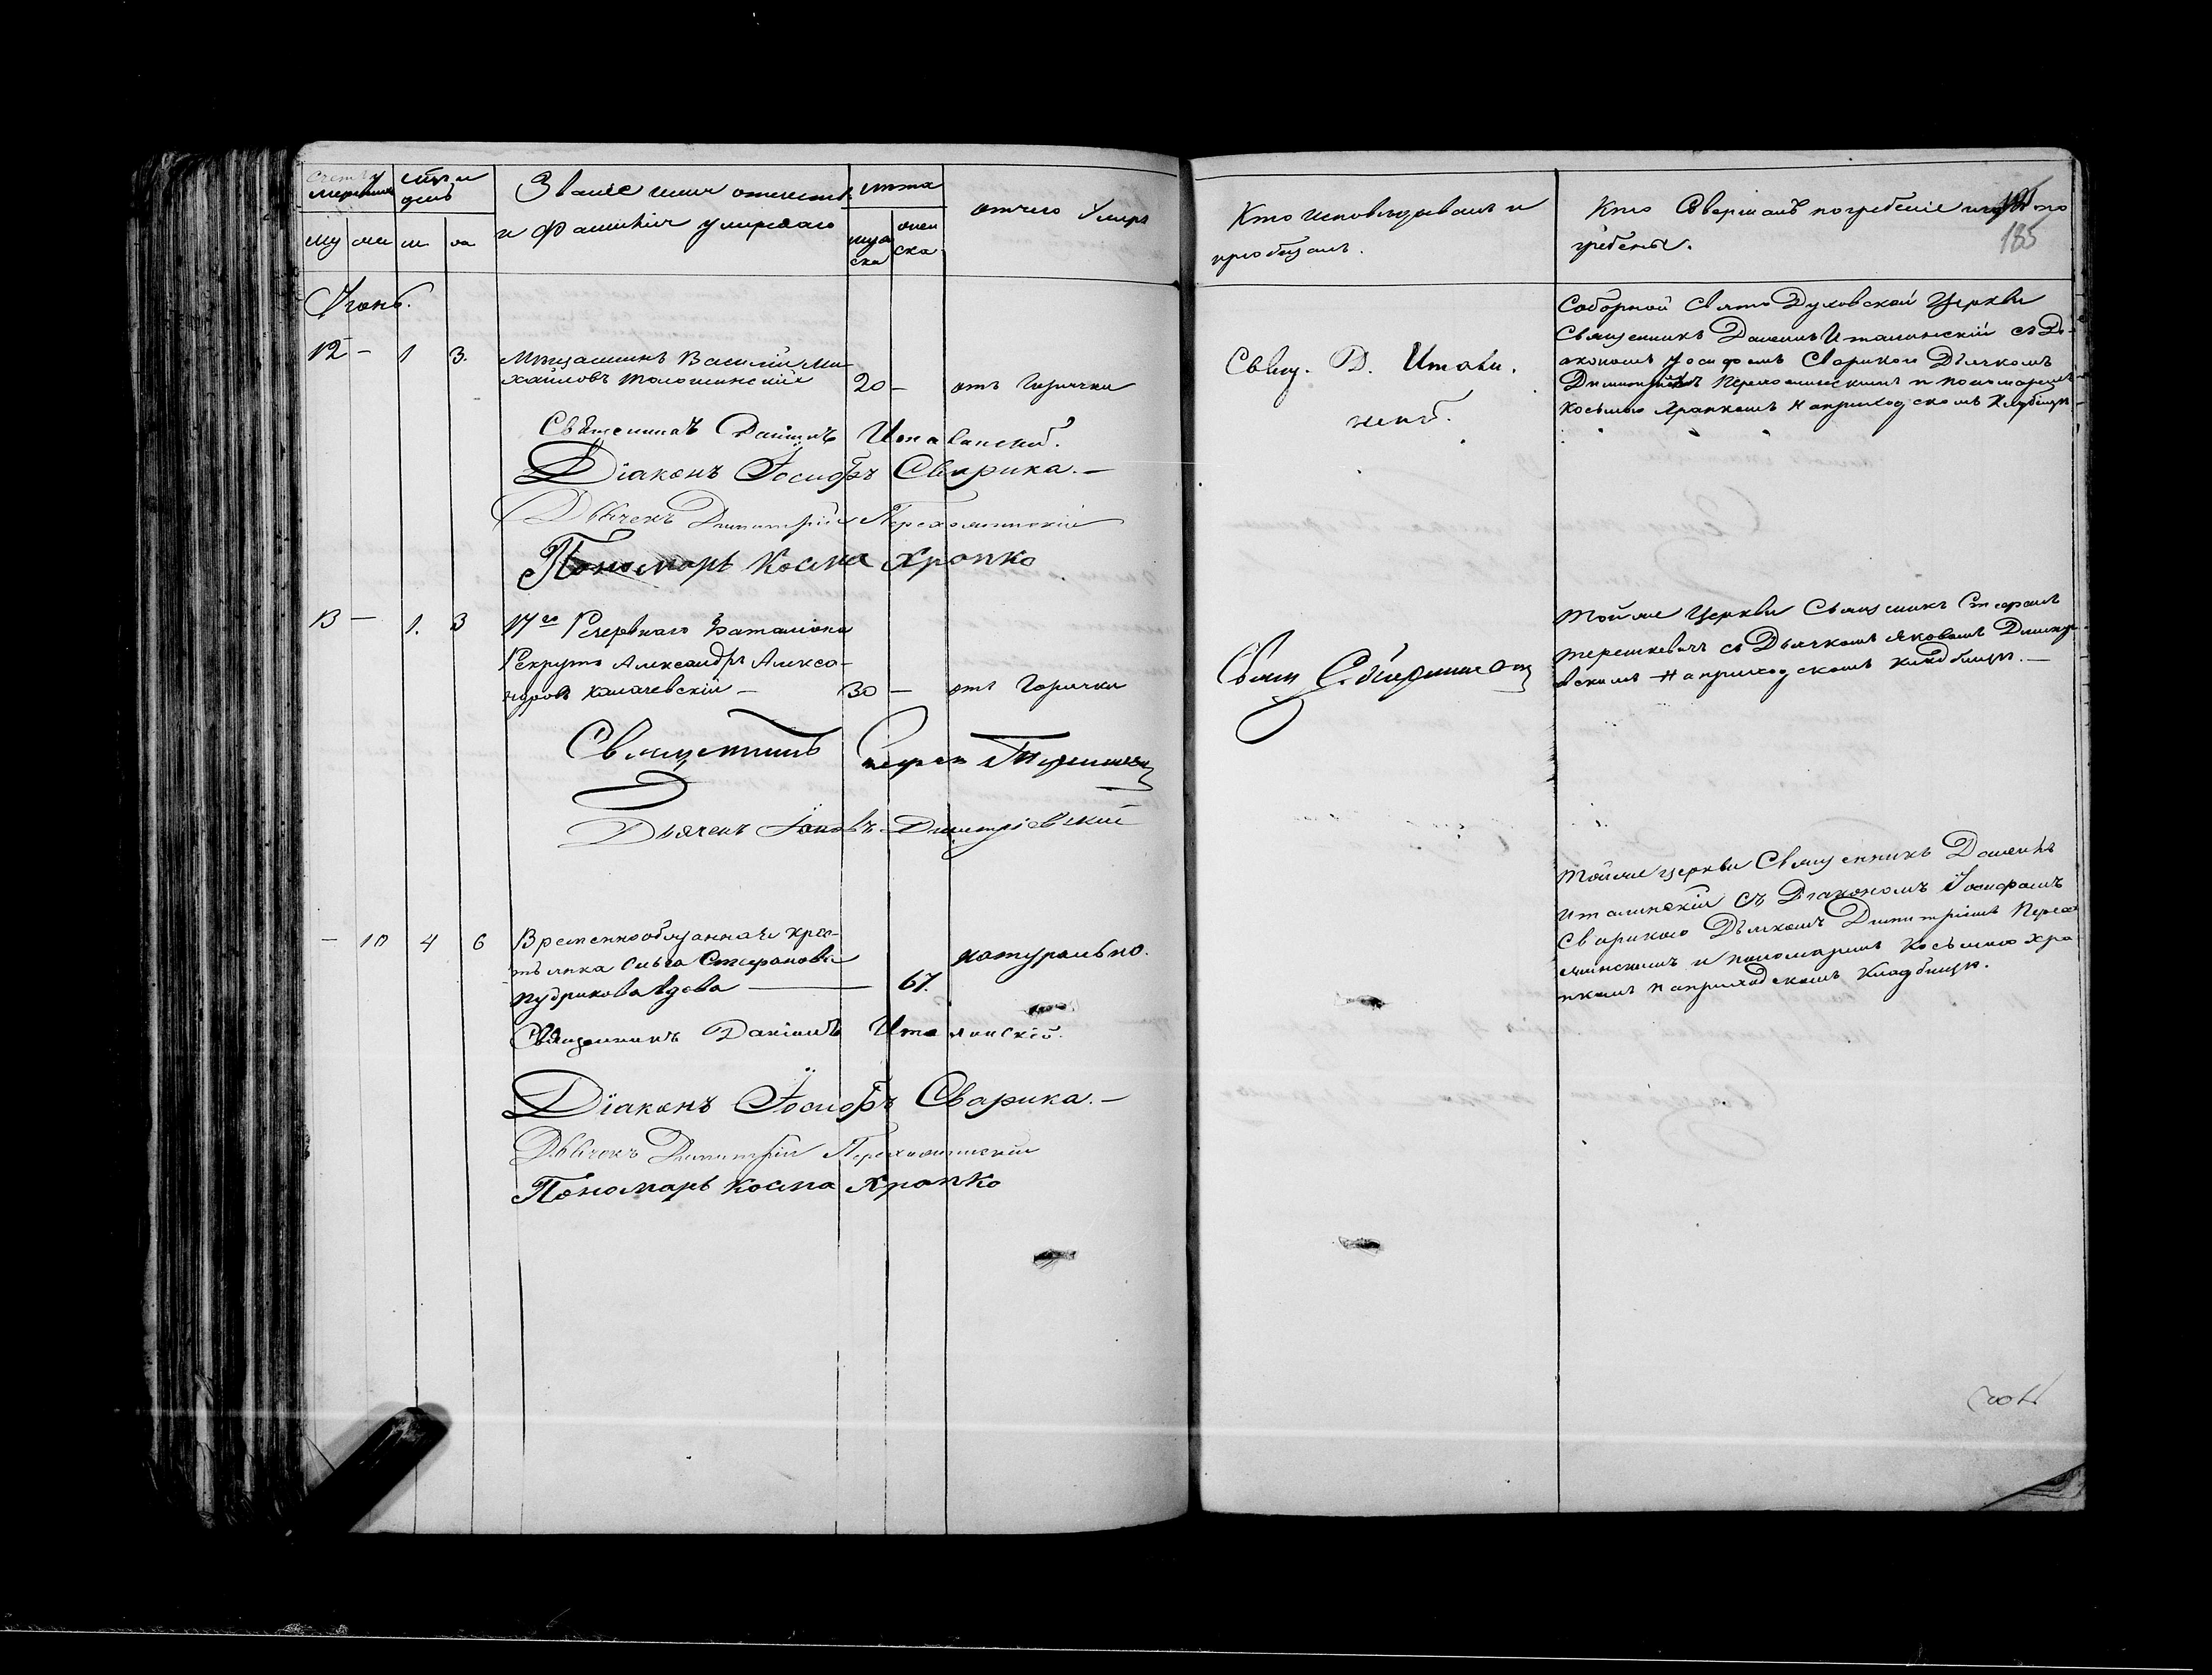 Счетъ у
мершихъ
мѣс. и
день
Званіе имя отчество
и фамилія умершаго
лѣта
отчего умеръ
му
же
м
по
муж
ска
жен
ска
Кто исповѣдывалъ и
пріобщалъ.
Кто Совершалъ погребеніе и гдѣ по
гребены.
185
Іюнь.
12 — 1 3. Мѣщанинъ Василій Ми-
хайловъ 20 — отъ Горячки
Свящ. Д. Итали.
нскій.
Соборной Свято Духовской Церкви
Священникъ Даніилъ Италинскій съ Ді-
акономъ Іосифомъ Сварикою Дьячкомъ
Димитріемъ и пономаремъ
Косьмою Храпкомъ На приходскомъ Кладбищѣ
Священникъ Даніилъ Италинскій.
Діаконъ Іосифъ Сварика. —
Дьячекъ Димитрій
Пономарь Косма Храпко
13 — 1. 3 17го Резервнаго Баталіона
Рекрутъ Александръ Алекса-
ндровъ Калачевскій — 30 — отъ Горячки
Свящ С.
Той же Церкви Священникъ Стефанъ
Терешкевичъ съ Дьячкомъ Яковомъ Димитрі-
евскимъ На приходскомъ кладбищѣ. —
Священникъ Стефанъ Терешкевичъ
Дьячекъ Іаковъ Димитріевскій
— 10 4 6 Временнообязанная крес-
тьянка Ольга Стефанова
вдова — 67. натурально.
Той же церкви Священникъ Даніилъ
Италинскій Съ Діакономъ Іосифомъ
Сварикою Дьячкомъ Димитріемъ
и пономаремъ Косьмою Хра
пкомъ На приходскомъ Кладбищѣ.
Священникъ Даніилъ Италинскій.
Діаконъ Іосифъ Сварика. —
Дьячекъ Димитрій
Пономарь Косма Храпко